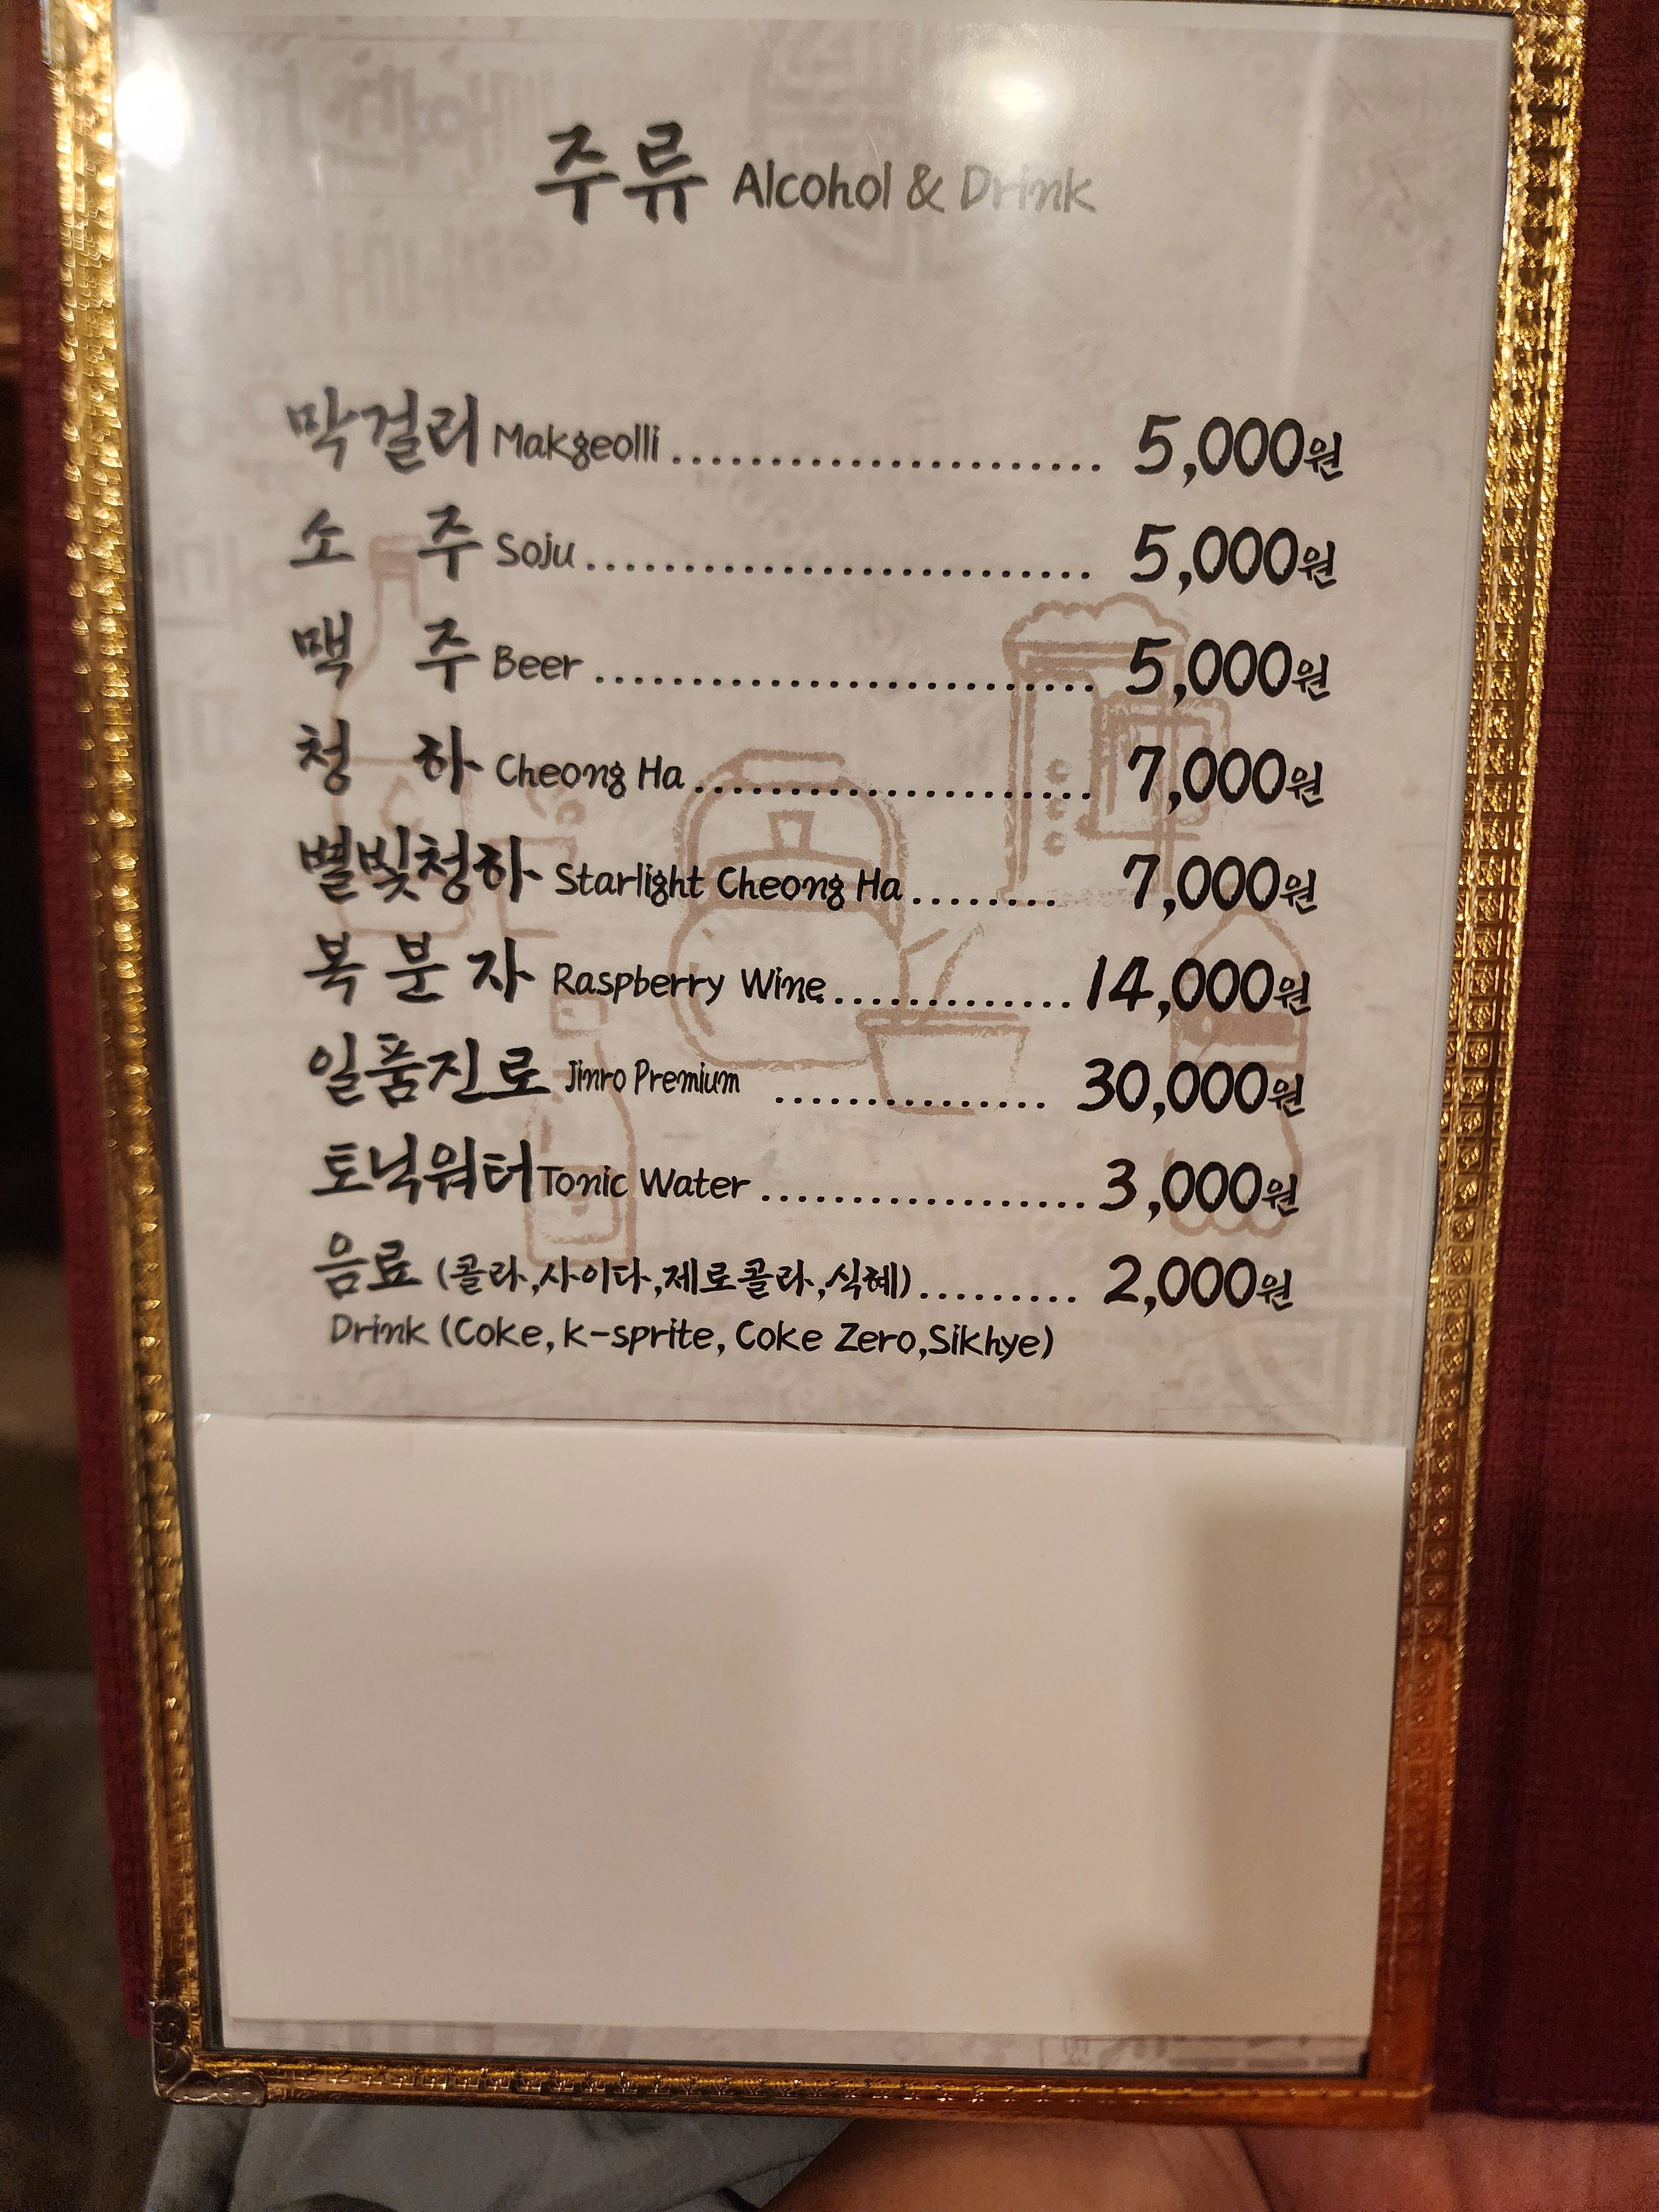 주류 Alcohol & Drink
막걸리 Makgeolli ...................... 5,000원
소 주 Soju .......................... 5,000원
맥 주 Beer .......................... 5,000원
청 하 Cheong Ha ..................... 7,000원
별빛청하 Starlight Cheong Ha ........ 7,000원
복 분 자 Raspberry Wine ............. 14,000원
일품진로 Jinro Premium .............. 30,000원
토닉워터 Tonic Water ................. 3,000원
음료 (콜라,사이다,제로콜라,식혜) ......... 2,000원
Drink (Coke, k-sprite, Coke Zero,Sikhye)